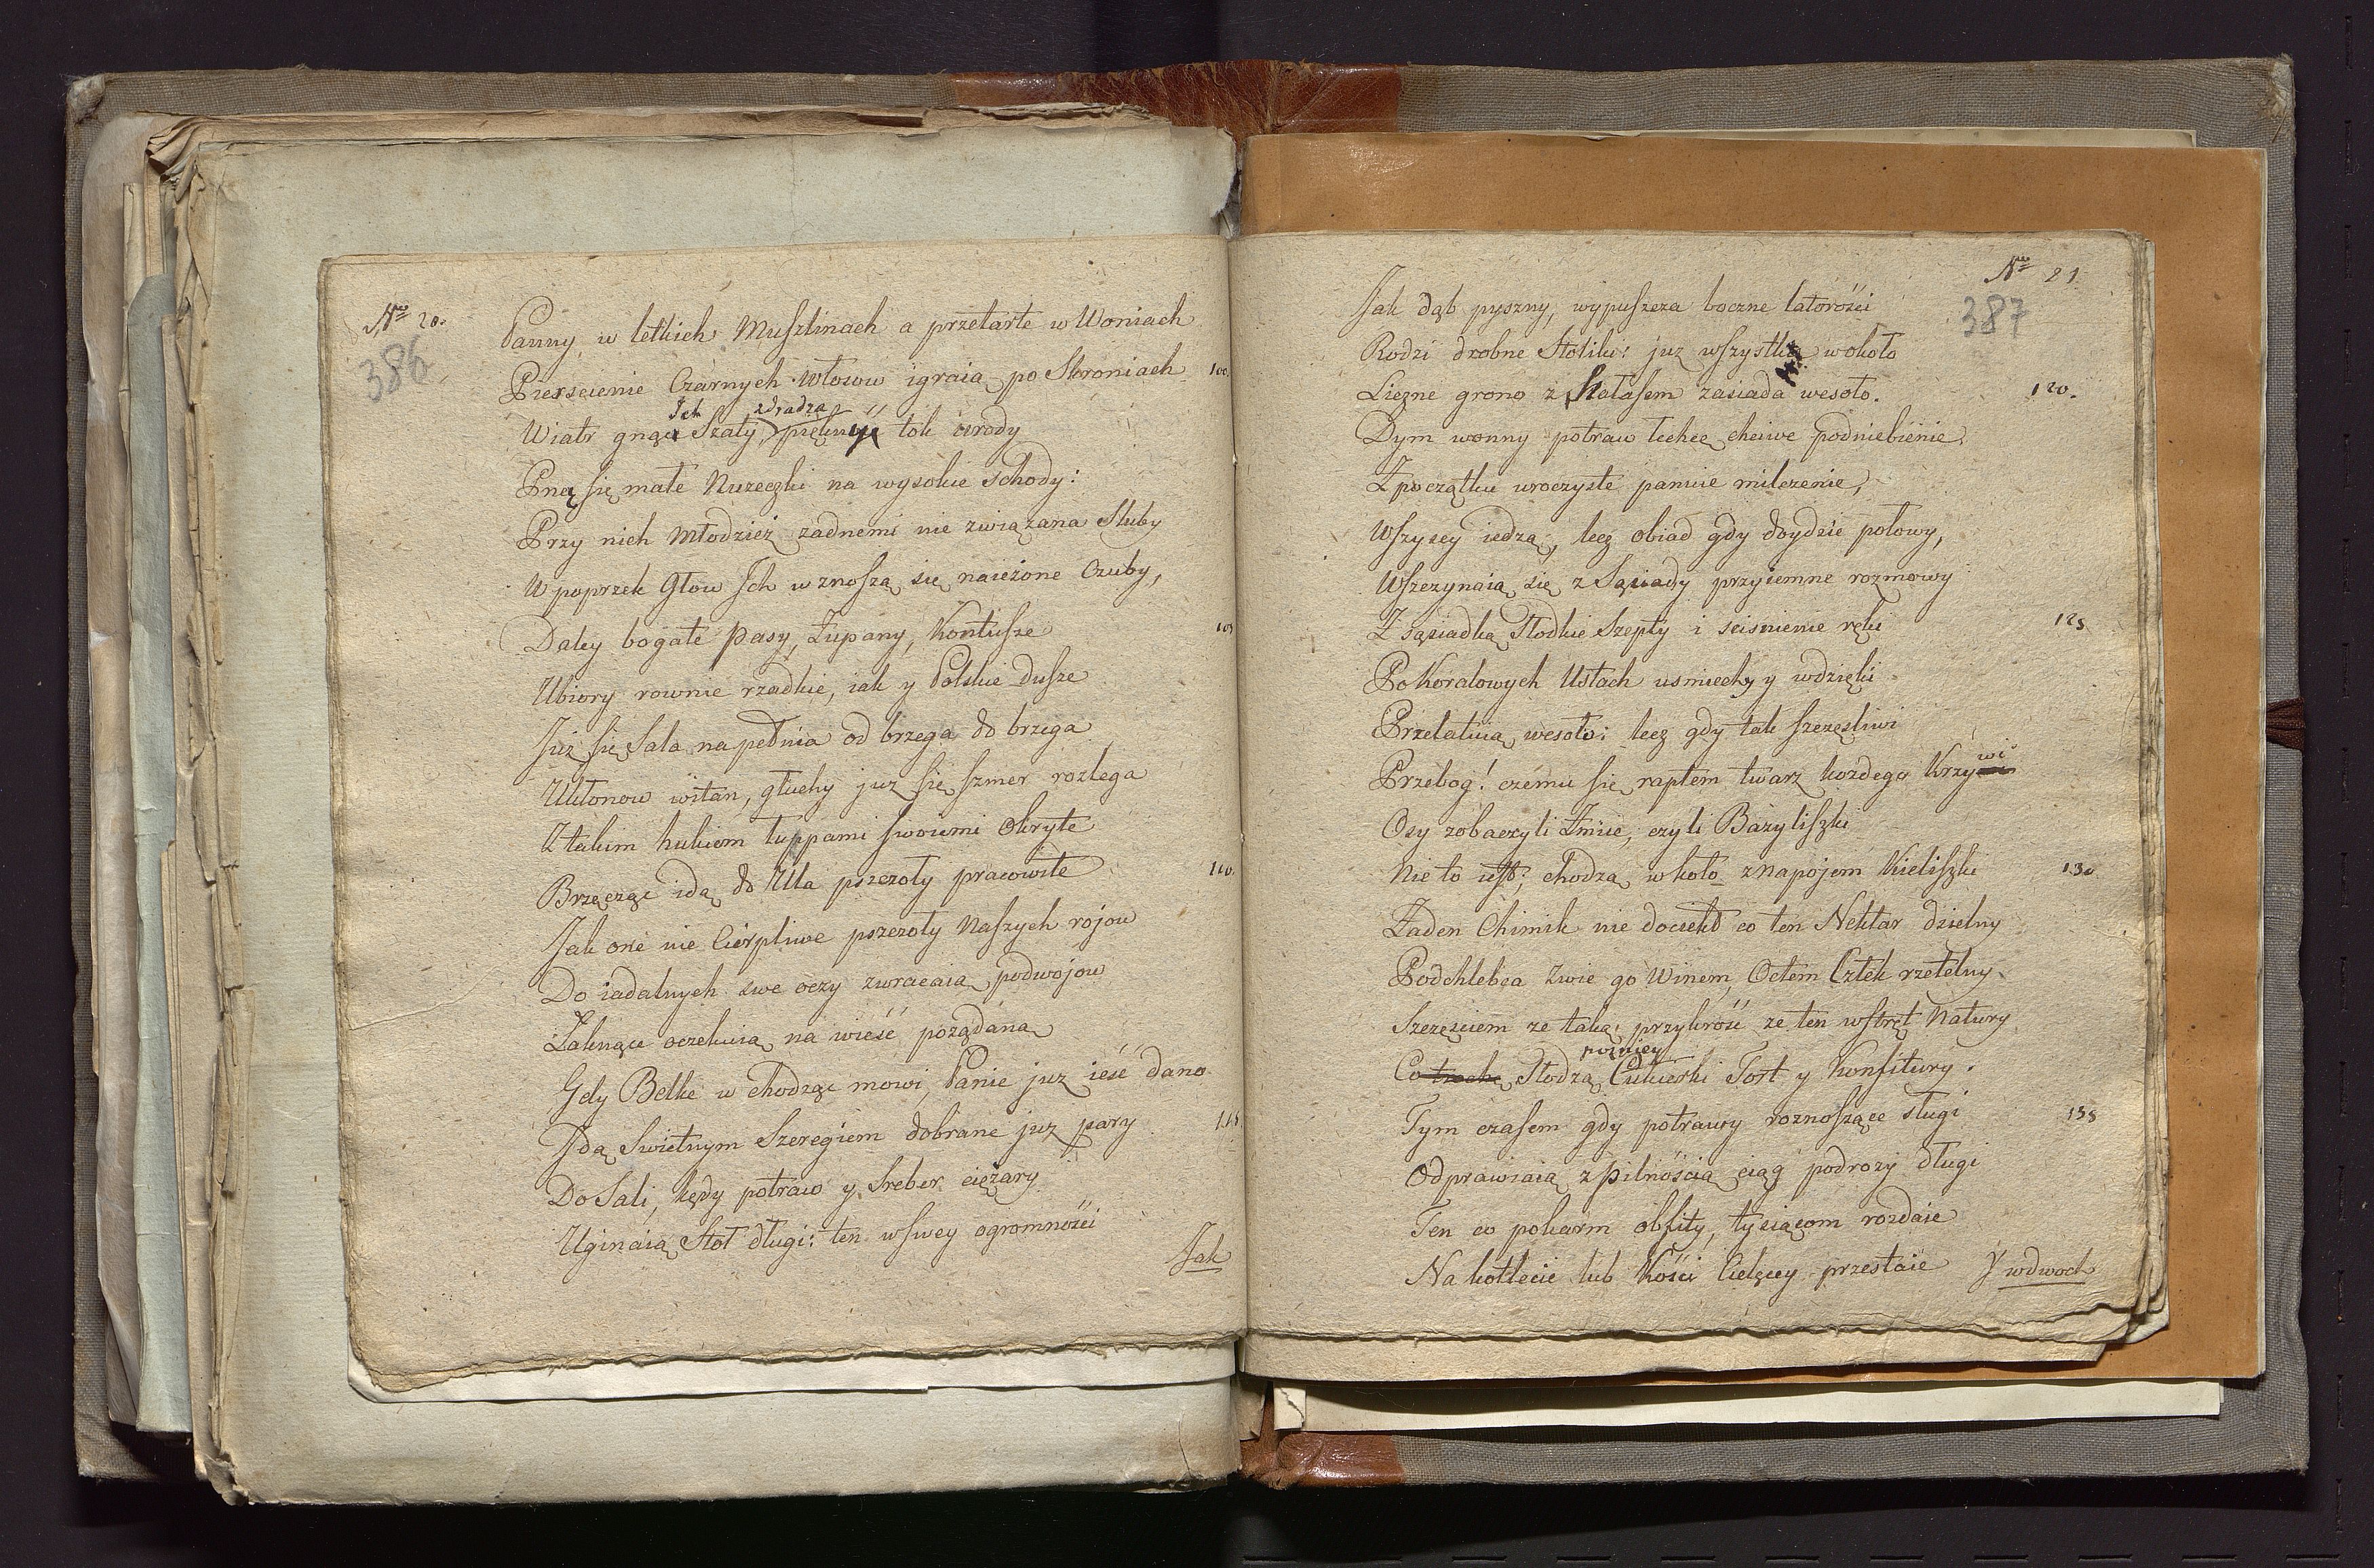 Nro 20.
386
Panny w letkich Muszlinach a przetarte w Woniach
Pierscienie Czarnych Włosow igraią po Skroniach 100.
Ich zdradza
Wiatr gnąc Szaty, tok urody
Pną się małe Nuzeczki na wysokie schody:
Przy nich Młodzież żadnemi nie związana Sluby
W poprzek Głow Ich wznoszą się naieżone Czuby,
Daley bogate pasy, Żupany, Kontusze 105
Ubiory rownie rzadkie, iak y Polskie dusze
Już się Sala napełnia od brzega do brzega
Ukłonow witan, głuchy juz się szmer rozlega
Z takim hukiem łuppami swoiemi Okryte
Brzęcząc idą do Ula pszczoły pracowite 110.
Jak one nie Cierpliwe pszczoły Naszych rojow
Do iadalnych swe oczy zwracaią podwojow
Łaknące oczekuią na wieść pożądaną
Gdy Belke wchodząc mowi, Panie juz ieść dano
Idą Swietnym Szeregiem dobrane juz pary 115
Do Sali, kędy potraw y Sreber ciężary
Uginaią Stoł długi: ten w swey ogromnośći
Jak
Nro 21.
387
Jak dąb pyszny, wypuszcza boczne latorośći
Rodzi drobne Stoliki: juz wszystko wokoło
Liczne grono z Hałasem zasiada wesoło. 120.
Dym wonny potraw łechce chciwe podniebienie
Z początku uroczyste panuie milczenie,
Wszyscy iedzą, lecz obiad gdy doydzie połowy,
Wszczynaią się z Sąsiady przyiemne rozmowy
Z sąsiadką Słodkie Szepty i scisnienie ręki 125
Po Koralowych Ustach usmiechy y wdzięki
Przelatuią wesoło: lecz gdy tak szczęśliwi
Przebog! czemu się raptem twarz kożdego Krzywi
Czy zobaczyli Żmiie, czyli Bazyliszki
Nie to iest; chodzą w koło z napojem Kieliszki 130
Żaden Chimik nie dociekł co ten Nektar dzielny
Podchlebca Zwie go Winem, Octem Człek rzetelny
Szczęściem ze taką przykrość ze ten wstręt Natury
pozniey
Co trochę Słodzą Cukierki Tort y Konfitury.
Tym czasem gdy potrawy roznoszące sługi 135
Odprawiaią z pilnością ciąg podrozy długi
Ten co pokarm obfity, tysiącom rozdaie
Na kotlecie lub Kości Cielęcey przestaie
Y wdwoch